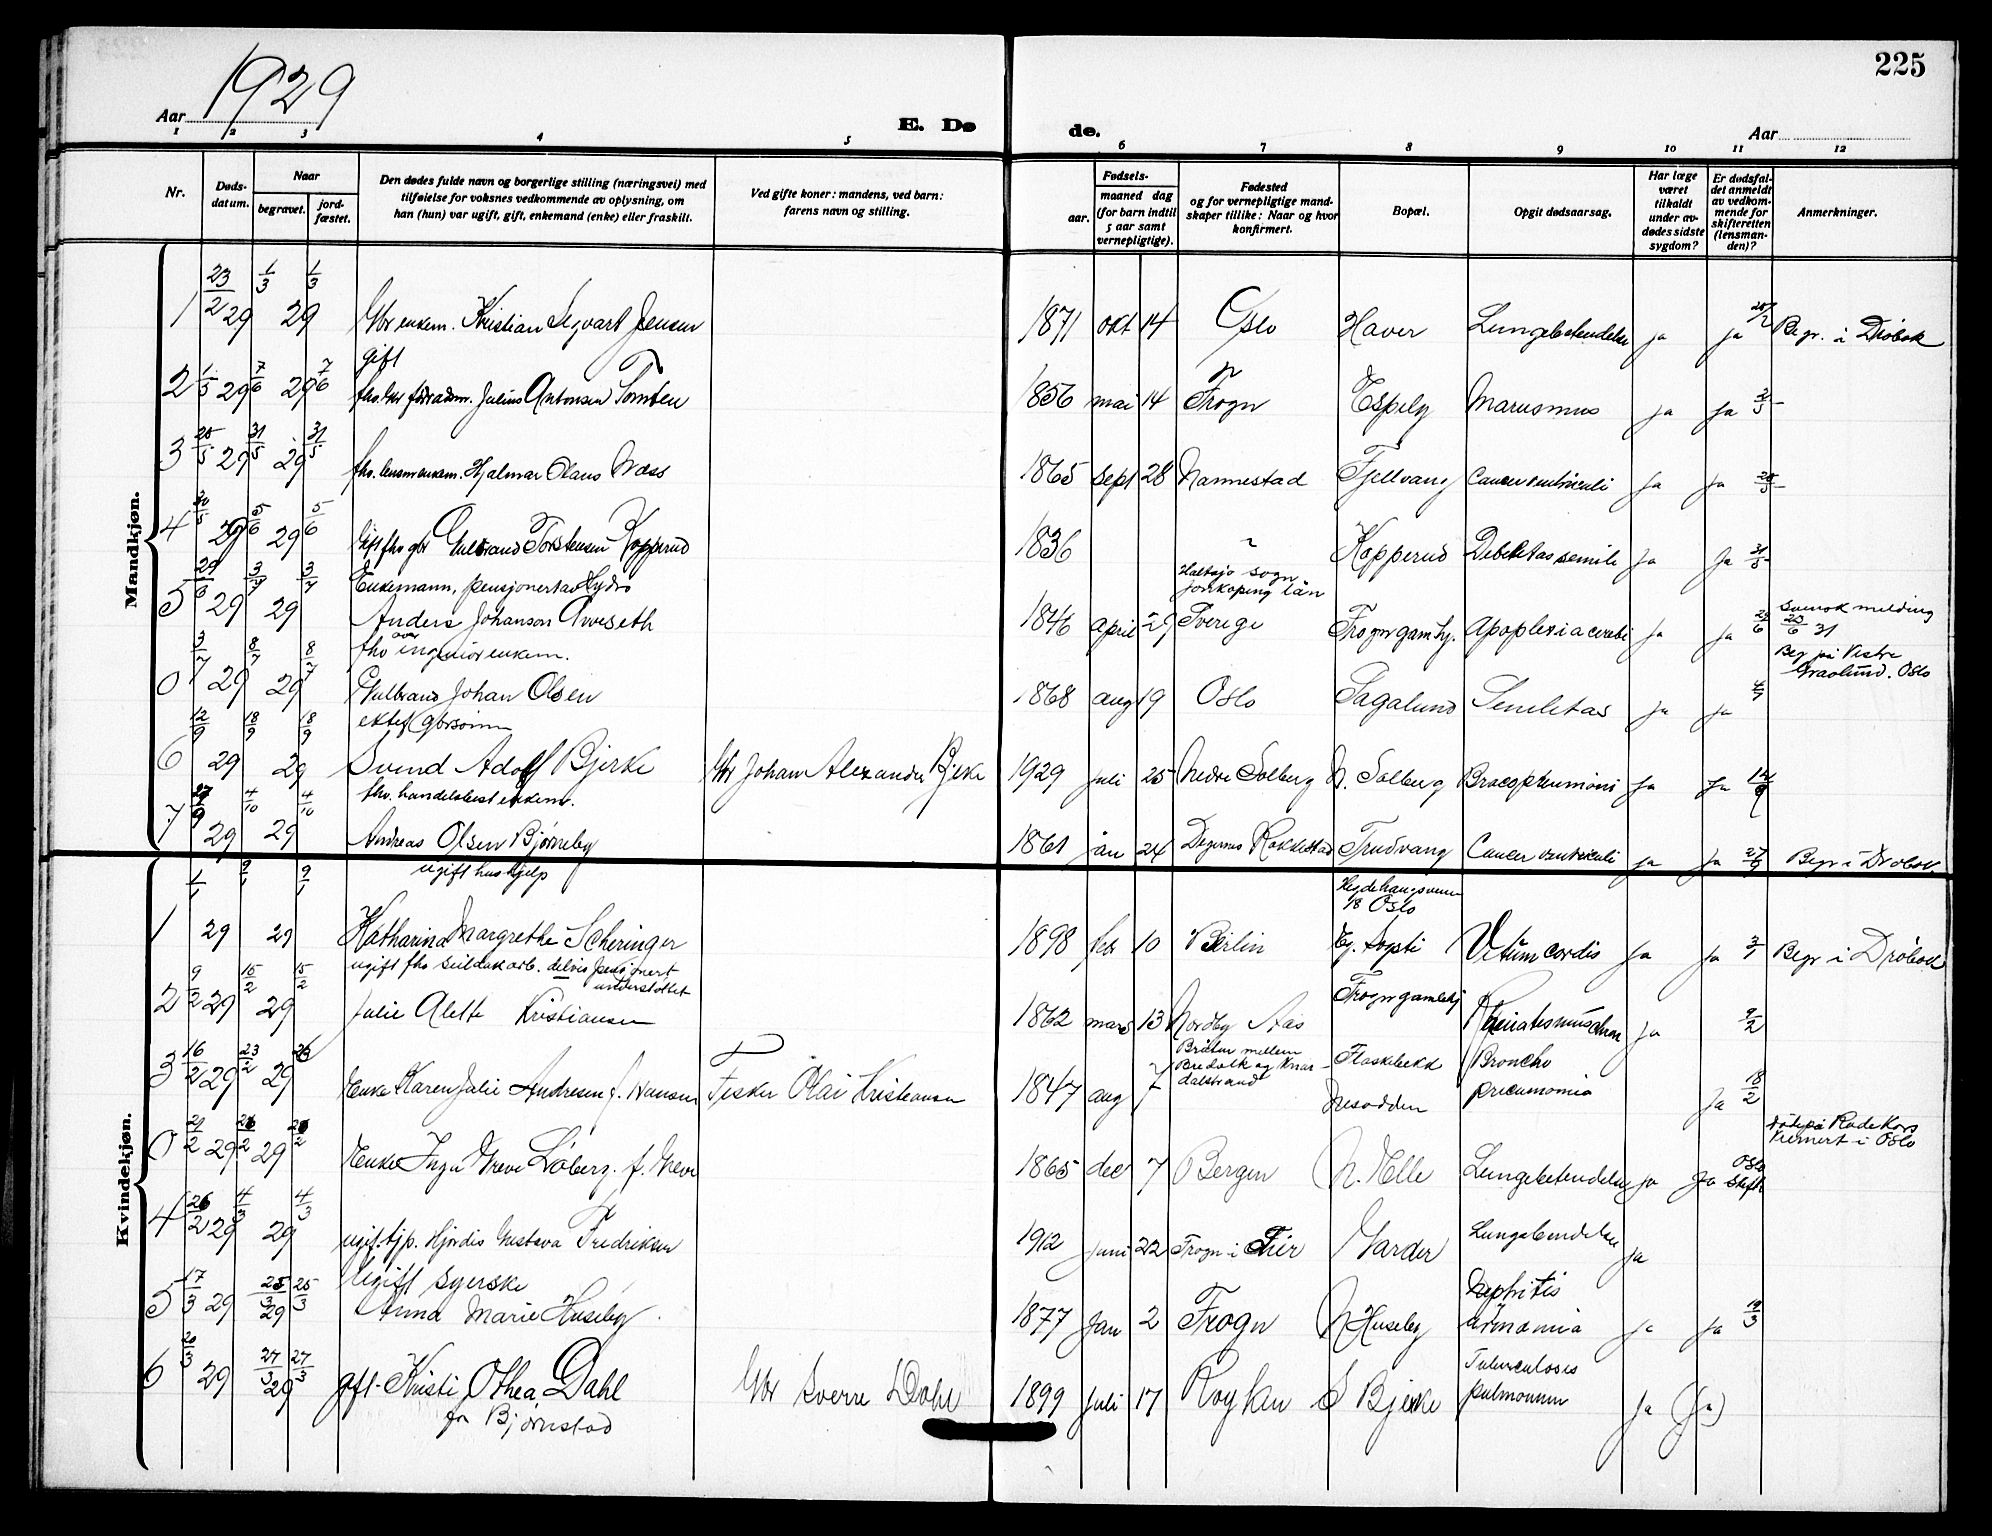 1929
225
Aar
E. Dø
de.
Aar
1 2 3 4 5 6 7 8 9 10 11 12
Nr.
Døds-
datum.
Naar
begravet.
jord-
fæstet.
Den dødes fulde navn og borgerlige stilling (næringsvei) med
tilføielse for voksnes vedkommende av oplysning, om
han (hun) var ugift, gift, enkemand (enke) eller fraskilt.
Ved gifte koner: mandens, ved barn:
farens navn og stilling.
Fødsels-
aar.
maaned dag
(for barn indtil
5 aar samt
vernepligtige).
Fødested
og for vernepligtige mand-
skaper tillike: Naar og hvor
konfirmert.
Bopæl.
Opgit dødsaarsag.
Har læge
været
tilkaldt
under av-
dødes sidste
sygdom?
Er dødsfal-
det anmeldt
av vedkom-
mende for
skifteretten
(lensman-
den)?
Anmerkninger.
Mandkjøn.
1 23/2 29 1/3 29 1/3 Gbr enkem. Kristian Segvart Jensen 1871 okt 14 Oslo Haver Lungebetendelse ja ja Begr. i Drøbak
gift
2 1/5 29 7/6 29 7/6 Julius Antonsen Tomten 1856 mai 14 Frogn Espely Marusmus ja ja 2/5
3 25/5 29 31/5 29 31/5 fho. lensm enkem. Hjalmar Olaus Næss 1865 sept 28 Nannestad Fjellvang Cancer ventriculi ja ja 28/5
4 30/5 29 5/6 29 5/6 Gift fho gbr Gulbrand Torstensen Kopperud 1836 " Kopperud ja ja 31/5
Enkemann, pensjonert
5 29/6 29 3/7 29 3/7 Anders Johanson 1846 april 29 Sverige Apoplexia cerebi ja ja 29/6
Haltsjö sogn
Jönköping län
Svensk melding
23/6 31
fho over ingeniør enkem.
0 3/7 29 8/7 29 8/7 Gulbrand Johan Olsen 1868 aug 19 Oslo Sagalund Seneletas ja ja 4/7
Beg på Vestre
Gravlund. Oslo
ektef gbrsønn
6 12/9 29 18/9 29 18/9 Svend Adolf Bjerke Gbr Johan Alexander Bjerke 1929 juli 25 Nedre Solberg N. Solberg ja ja 12/9
fho. handelsbest enkem.
7 29 4/10 29 4/10 Andreas Olsen Bjørneby 1861 jan 24 Degernes Rakkestad Trudvang Cancer ventriculi ja ja 27/9 Begr i Drøbak.
Kvindekjøn.
ugift hushjelp
1 1/1 29 9/1 29 9/1 Katharina Margrethe Scheringer 1898 feb 10 Berlin Vitium cordis ja ja Begr i Drøbak
18 Oslo
ugift fho delvis pensjonert
understøttet
2 9/2 29 15/2 29 15/2 Julie Alette Kristiansen 1862 mars 13 Nordby Aas ja 9/2
3 16/2 29 23/2 29 Enke Karen Julie Andresen f. Hansen Fisker Olai Kristiansen 1847 aug 7 Flaskebekk Broncho
Nesodden pneumonia ja 18/2
Bråten mellem
0 21/2 29 29 Enke Inga Greve Løberg. f. Greve 1865 dec 7 Bergen N. Elle Lungebetendelse ja ja Oslo Skifte
død på Røde Kors
i Oslo
4 26/2 29 4/3 29 4/3 ugif. tjp. Hjørdis Gustava Fredriksen 1912 juni 22 Frogn i Garder ja
Ugift syerske
5 17/3 29 25/3 29 25/3 Anna Marie Huseby 1877 jan 2 Frogn N Huseby Nephritis
urmamia ja ja 19/3
6 20/3 29 27/3 29 27/3 gft. Kristi Othea Dahl Gbr Sverre Dahl 1899 juli 17 Røyken S Bjerke Tuberculosis
pulmonum ja (ja)
fra Bjørnstad